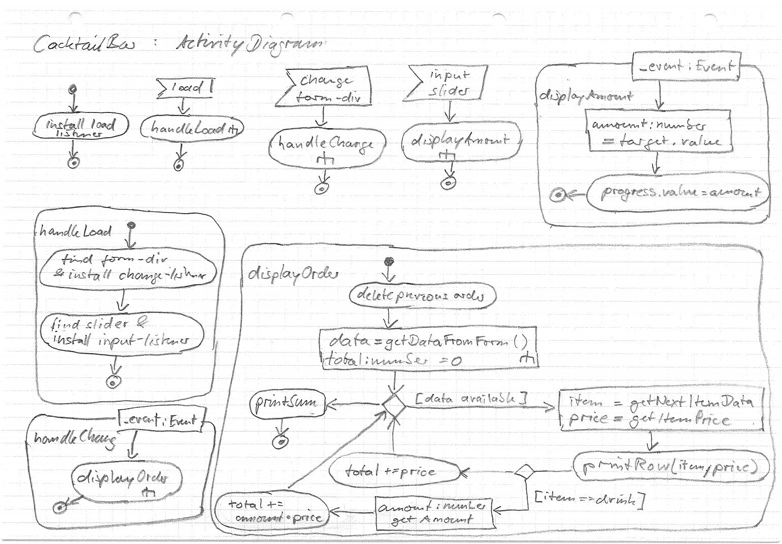 CocktailBar : Activity Diagram
install load
listener
load
handleLoad
change
form-div
handleChange
input
slider
displayAmount
_event: Event
displayAmount
amount: number
= target.value
progress.value = amount
handleLoad
find form-div
& install change-listener
find slider &
install input-listener
_event: Event
handleChang
displayOrder
displayOrder
delete previous order
data = getDataFromForm()
total: number = 0
[data available]
printSum
item = getNextItemData
price = getItemPrice
printRow(item, price)
total += price
[item == drink]
amount: number
get Amount
total +=
amount * price